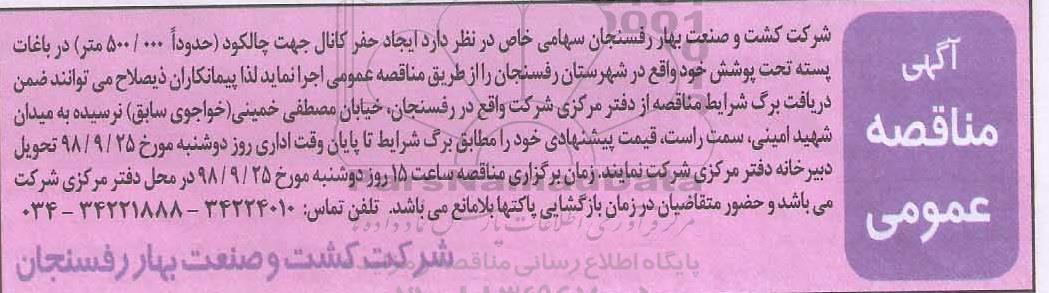 آگهی
مناقصه
عمومی
شرکت کشت و صنعت بهار رفسنجان سهامی خاص در نظر دارد ایجاد حفر کانال جهت چالکود (حدوداً ۵۰۰/۰۰۰ متر) در باغات
پسته تحت پوشش خود واقع در شهرستان رفسنجان را از طریق مناقصه عمومی اجرا نماید لذا پیمانکاران ذیصلاح می توانند ضمن
دریافت برگ شرایط مناقصه از دفتر مرکزی شرکت واقع در رفسنجان، خیابان مصطفی خمینی(خواجوی سابق) نرسیده به میدان
شهید امینی، سمت راست، قیمت پیشنهادی خود را مطابق برگ شرایط تا پایان وقت اداری روز دوشنبه مورخ ۹۸/۹/۲۵ تحویل
دبیرخانه دفتر مرکزی شرکت نمایند. زمان برگزاری مناقصه ساعت ۱۵ روز دوشنبه مورخ ۹۸/۹/۲۵ در محل دفتر مرکزی شرکت
می باشد و حضور متقاضیان در زمان بازگشایی پاکتها بلامانع می باشد. تلفن تماس: ۳۴۲۲۴۰۱۰ – ۳۴۲۲۱۸۸۸ – ۰۳۴
شرکت کشت و صنعت بهار رفسنجان
پایگاه اطلاع رسانی مناقصه